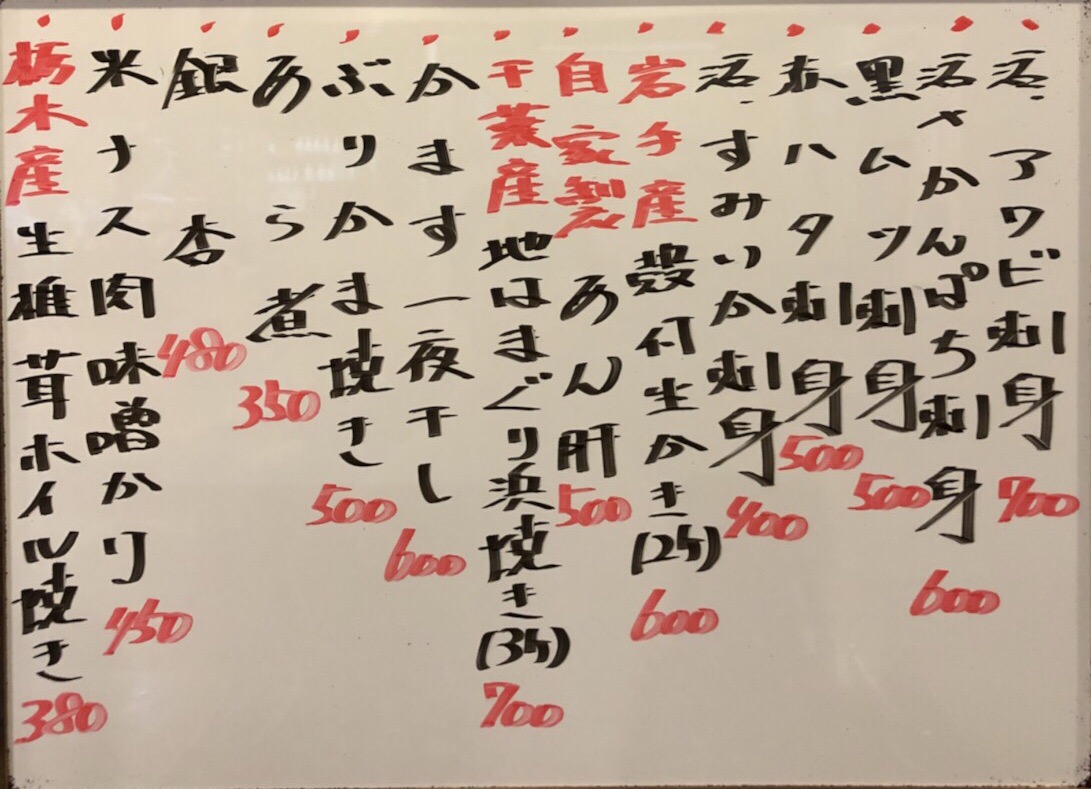 活アワビ刺身 700
活〆かんぱち刺身 600
黒ムツ刺身 500
赤ハタ刺身 500
活すみいか刺身 400
岩手産 殻付生かき(2ケ) 600
自家製 あん肝 500
千葉産 地はまぐり浜焼き(3ケ) 700
かます一夜干し 600
ぶりかま焼き 500
あら煮 350
銀杏 480
米ナス肉味噌かけ 450
栃木産 生椎茸ホイル焼き 380